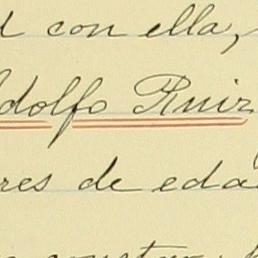 con ella,
dolfo Ruiz
res de eda